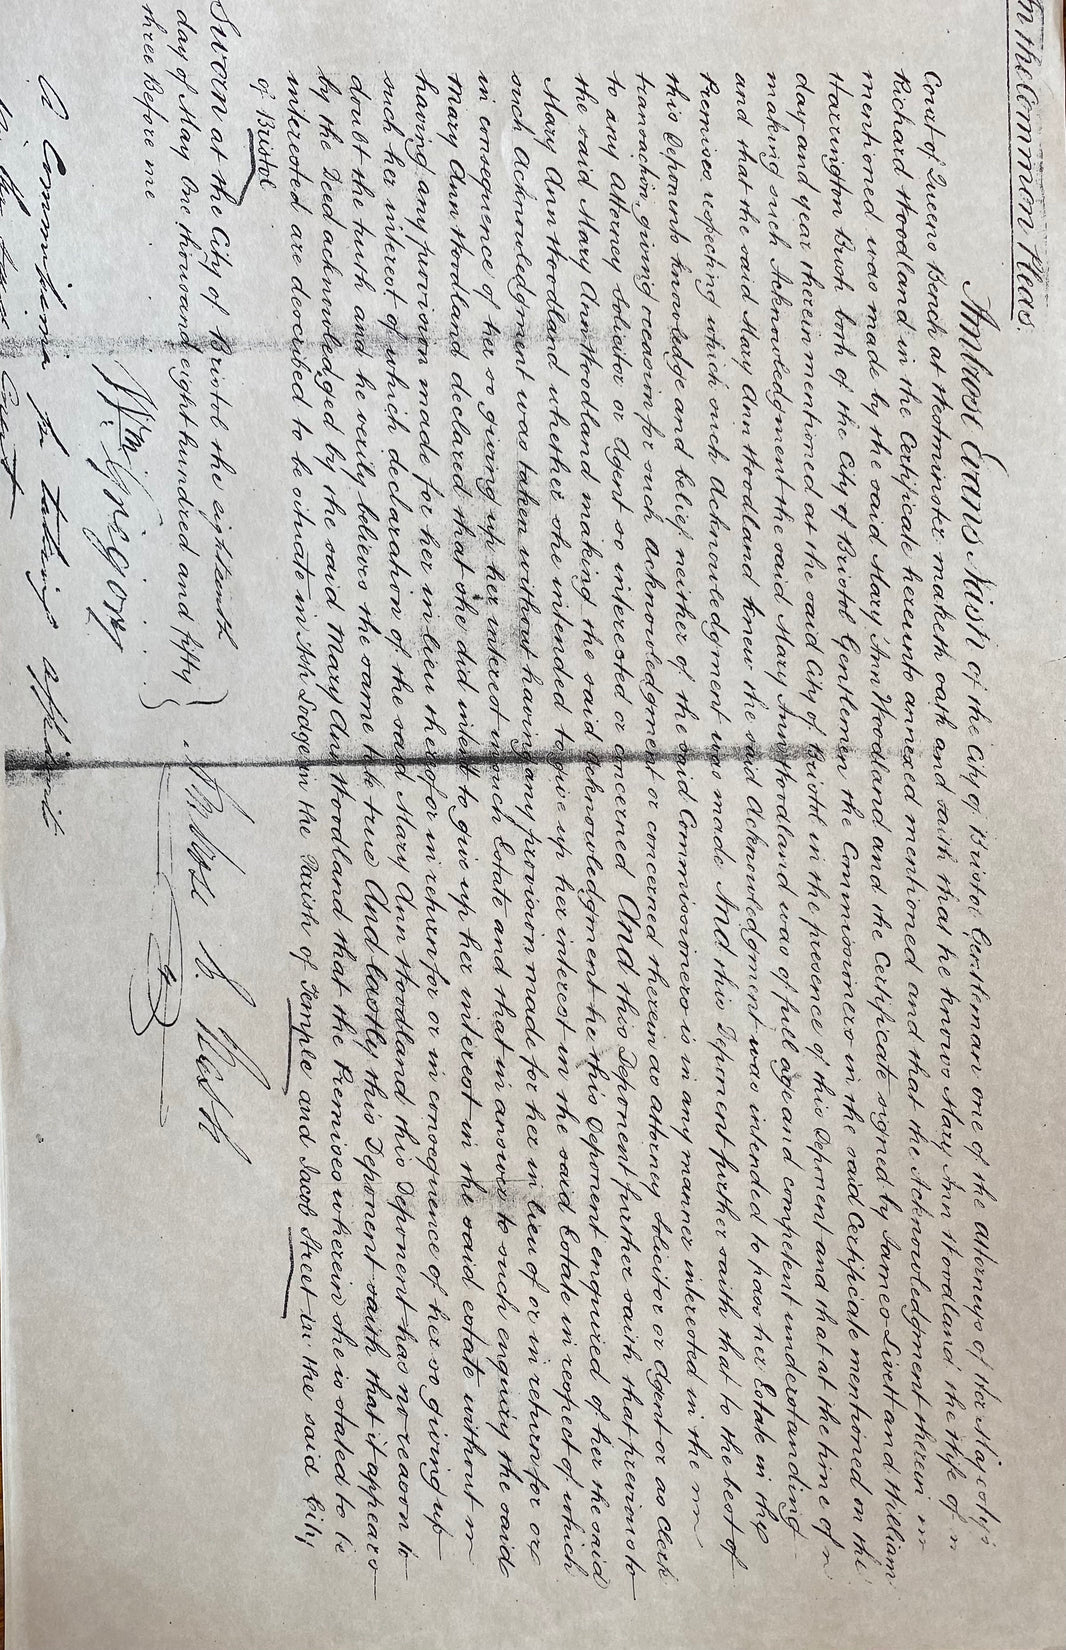 In the Common Pleas.
Ambrose Evans Nash of the City of Bristol Gentleman one of the Attorneys of Her Majesty's
Court of Queens Bench at Westminster maketh oath and saith that he knows Mary Ann Woodland the Wife of
Richard Woodland in the Certificate hereunto annexed mentioned and that the Acknowledgment therein
mentioned was made by the said Mary Ann Woodland and the Certificate signed by James Livett and William
Harrington Bush both of the City of Bristol Gentlemen the Commissioners in the said Certificate mentioned on the
day and year therein mentioned at the said City of Bristol in the presence of this Deponent and that at the time of
making such Acknowledgment the said Mary Ann Woodland was of full age and competent understanding
and that the said Mary Ann Woodland knew the said Acknowledgment was intended to pass her Estate in the
Premises respecting which such Acknowledgment was made And this Deponent further saith that to the best of
this Deponents knowledge and belief neither of the said Commissioners is in any manner interested in the
transaction giving occasion for such acknowledgment or concerned therein as attorney Solicitor or Agent or as Clerk
to any Attorney Solicitor or Agent so interested or concerned And this Deponent further saith that previous to
the said Mary Ann Woodland making the said acknowledgment he this Deponent enquired of her the said
Mary Ann Woodland whether she intended to give up her interest in the said Estate in respect of which
such Acknowledgment was taken without having any provision made for her in lieu of or in return for or
in consequence of her so giving up her interest in such Estate and that in answer to such enquiry the said
Mary Ann Woodland declared that she did intend to give up her interest in the said estate without
having any provision made for her in lieu thereof or in return for or in consequence of her so giving up
such her interest of which declaration of the said Mary Ann Woodland this Deponent has no reason to
doubt the truth and he verily believes the same to be true And lastly this Deponent saith that it appears
by the Deed acknowledged by the said Mary Ann Woodland that the Premises wherein she is stated to be
interested are described to be situate in in the Parish of Temple and Jacob Street in the said City
of Bristol
Sworn at the City of Bristol the eighteenth
day of May One thousand eight hundred and fifty
three Before me
Ambrose E. Nash
Wm. Gregory
A Commissioner for taking affidavits